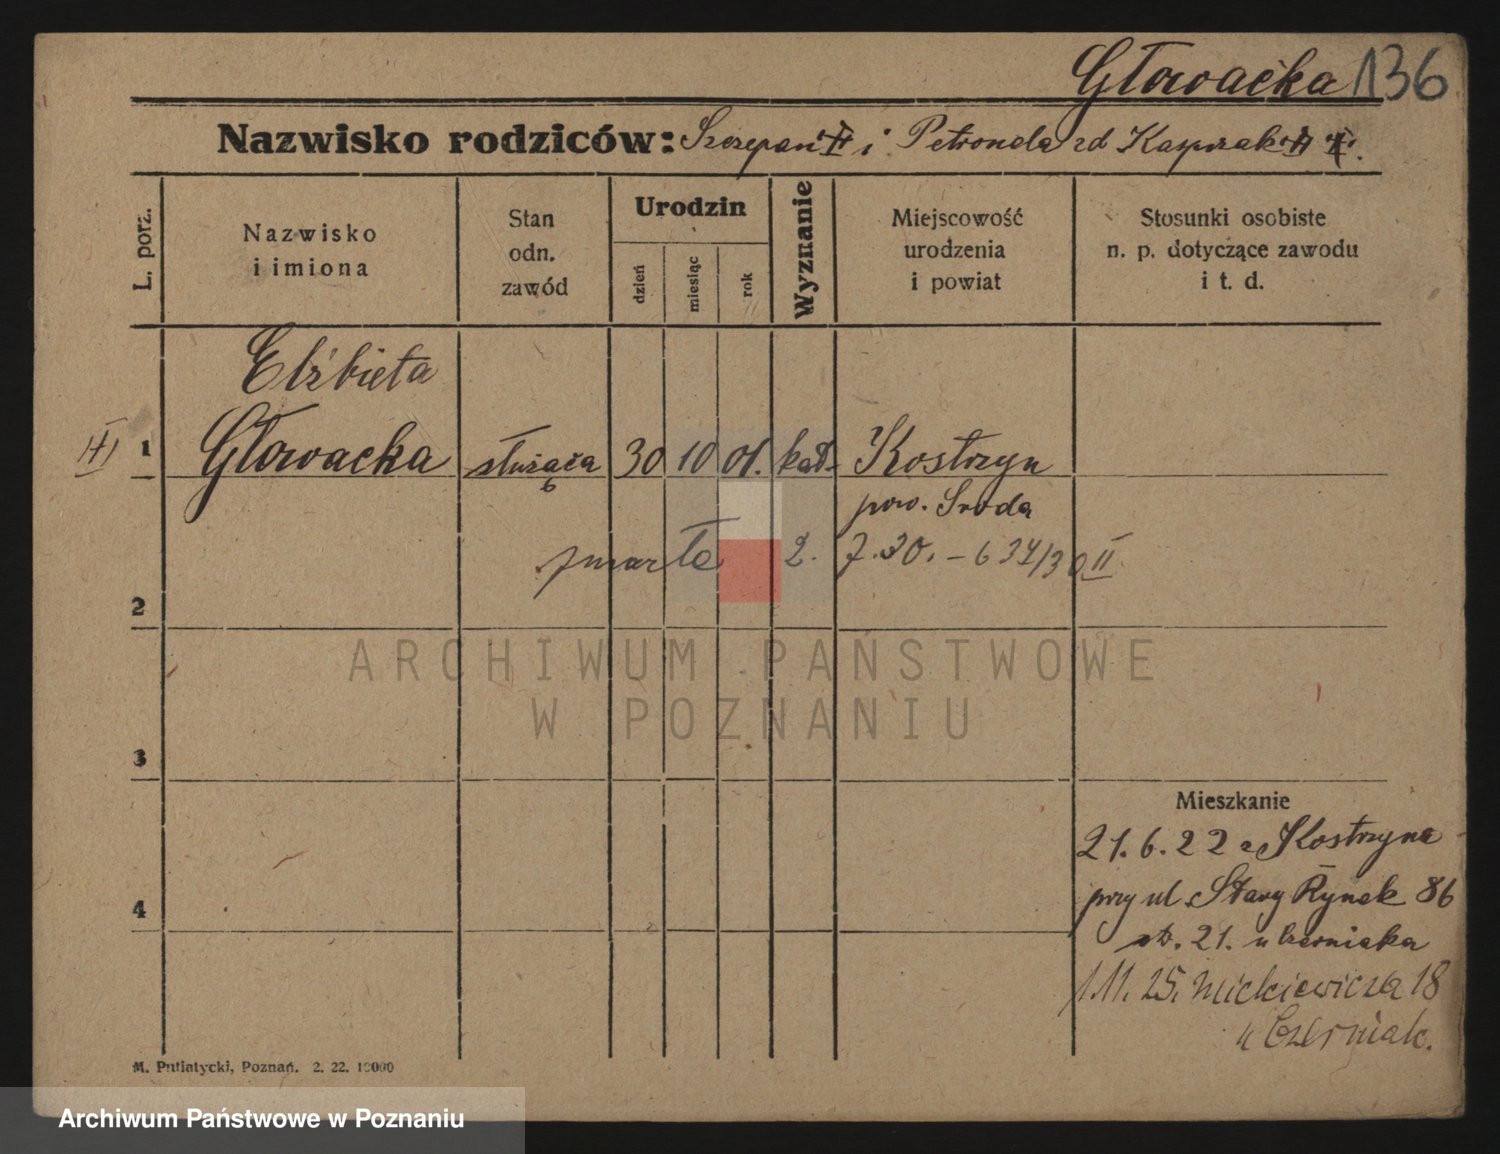 Głowacka 136
Nazwisko rodziców: Szczepan i Petronela zd Kasprzak
L. porz.
Nazwisko
i imiona
Stan
odn.
zawód
Urodzin
dzień
miesiąc
rok
Wyznanie
Miejscowość
urodzenia
i powiat
Stosunki osobiste
n. p. dotyczące zawodu
i t. d.
Elżbieta
1 Głowacka służąca 30 10 01. kat. Kostrzyn
pow. Sroda
zmarła 2. 7. 30. – 634/30 II
2
3
4
Mieszkanie
21. 6. 22 z Kostrzyna
przy ul. Stary Rynek 86
str. 21. u Czerniaka
1.11. 25. Mickiewicza 18
u Czerniak.
M. Putiatycki, Poznań. 2. 22. 10000
ARCHIWUM PAŃSTWOWE
W POZNANIU
Archiwum Państwowe w Poznaniu